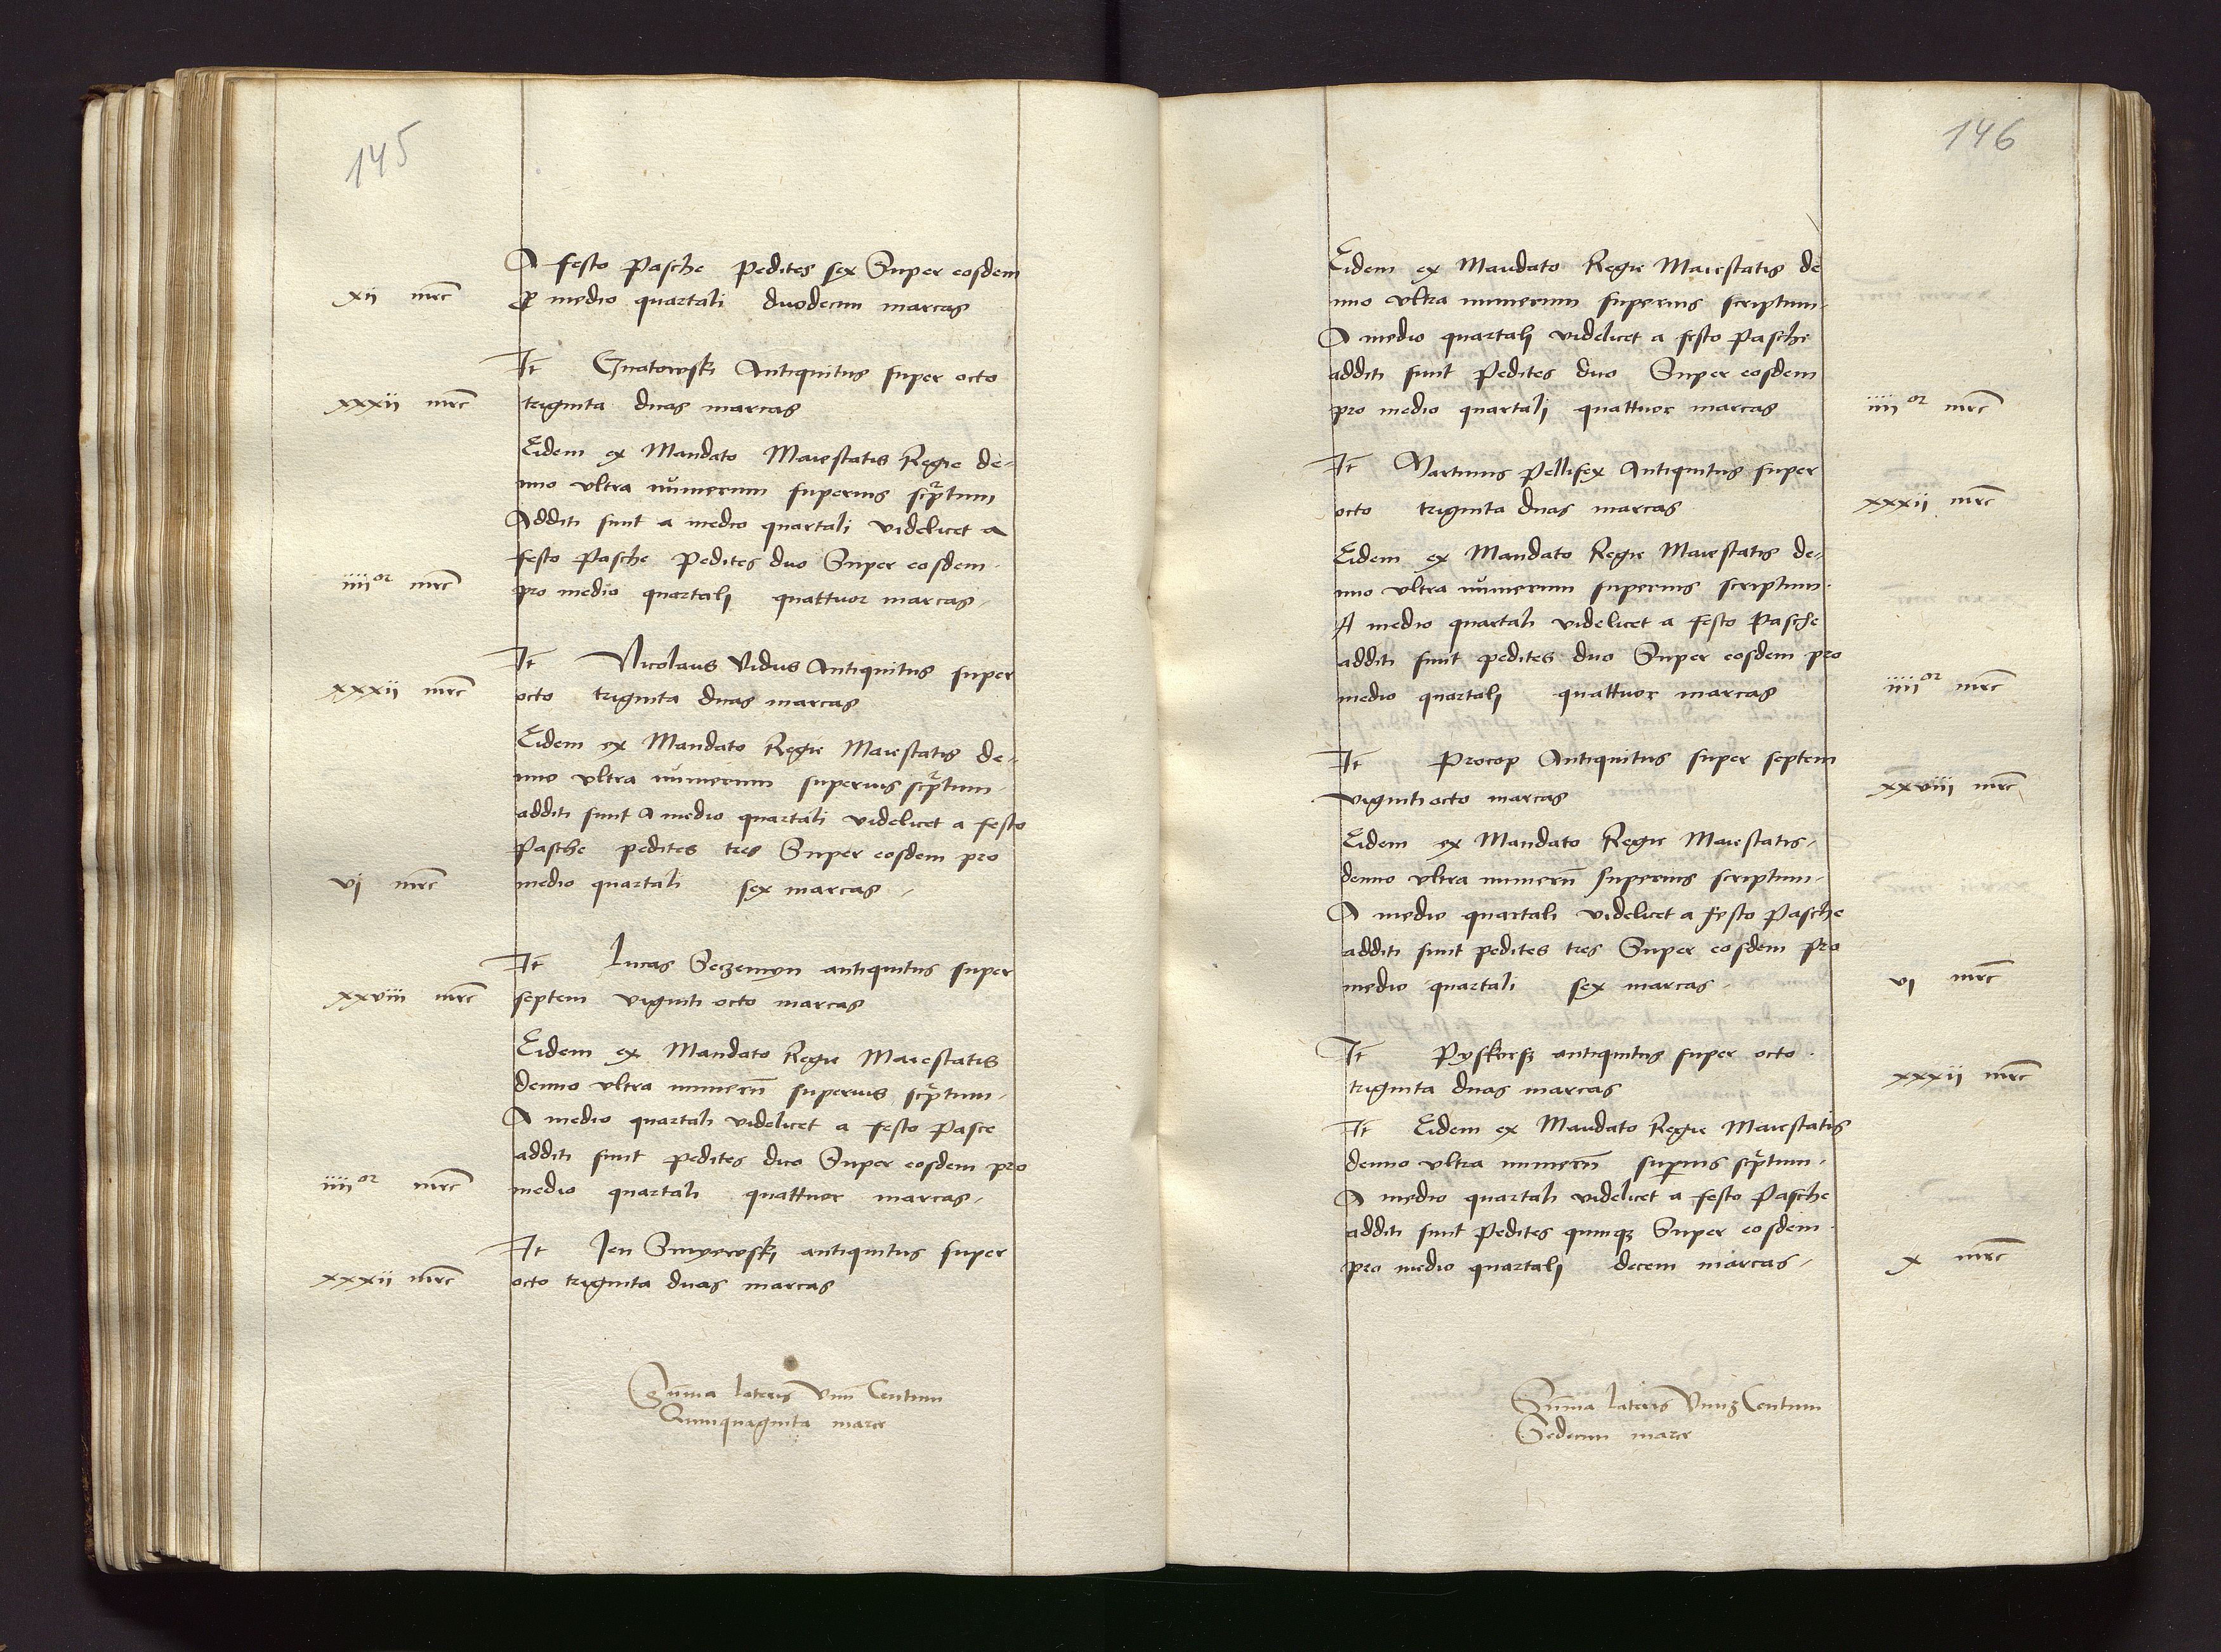 145
A festo Pasche pedites sex Super eosdem
xii mrc
P medio quartali duodecim marcas
It Gnatowski Antiquitus super octo
xxxii mrc
triginta duas marcas
Eidem ex Mandato Maiestatis Regie de-
nuo vltra numerum superius scriptum
Additi sunt a medio quartali videlicet a
festo Pasche Pedites duo Super eosdem
iiii or mrc
pro medio quartali quattuor marcas
It Nicolaus Vidus Antiquitus super
xxxii mrc
octo triginta duas marcas
Eidem ex Mandato Regie Maiestatis de-
nuo vltra numerum superius scriptum
additi sunt A medio quartali videlicet a festo
Pasche pedites tres Super eosdem pro
vi mrc
medio quartali sex marcas
It Lucas antiquitus super
xxviii mrc
septem viginti octo marcas
Eidem ex Mandato Regie Maiestatis
denuo vltra numerū superius scriptum
A medio quartali videlicet a festo Pasce
additi sunt pedites duo Super eosdem pro
iiii or mrc
medio quartali quattuor marcas
It Jen antiquitus super
xxxii mrc
octo triginta duas marcas
Sūma lateris Vnū Centum
Quinquaginta marce
146
Eidem ex Mandato Regie Maiestatis de
nuo vltra numerum superius scriptum
A medio quartali videlicet a festo Pasche
additi sunt Pedites duo Super eosdem
pro medio quartali quattuor marcas
iiii or mrc
It Martinus Pellifex Antiquitus super
octo triginta duas marcas
xxxii mrc
Eidem ex Mandato Regie Maiestatis de-
nuo vltra numerum superius scriptum
A medio quartali videlicet a festo Pasche
additi sunt pedites duo Super eosdem pro
medio quartali quattuor marcas
iiii or mrc
It Procop Antiquitus super septem
viginti octo marcas
xxviii mrc
Eidem ex Mandato Regie Maiestatis
denuo vltra numerū superius scriptum
A medio quartali videlicet a festo Pasche
additi sunt pedites tres Super eosdem pro
medio quartali sex marcas
vi mrc
It antiquitus super octo
triginta duas marcas
xxxii mrc
It Eidem ex Mandato Regie Maiestatis
denuo vltra numerū superius scriptum
A medio quartali videlicet a festo Pasche
additi sunt Pedites quinqȝ Super eosdem
pro medio quartali decem marcas
x mrc
Sūma lateris Vnuȝ Centum
Sedecim marce